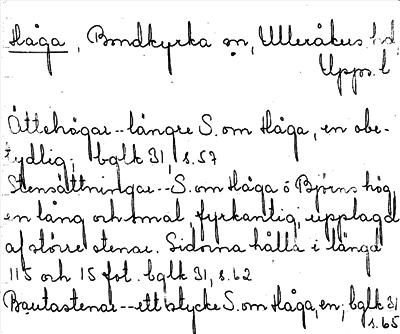 Håga, Bondkyrka sn, Ulleråkers hd
Upps. l
Ättehögar--längre S. om Håga, en obe-
tydlig; bglk 31, s. 57
Stensättningar--S. om Håga ö Björns hög,
en lång och smal fyrkantig, upplagd
af större stenar. Sidorna hålla i längd
115 och 15 fot. bglk 31, s. 62
Bautastenar--ett stycke S. om Håga, en; bglk 31
s. 65